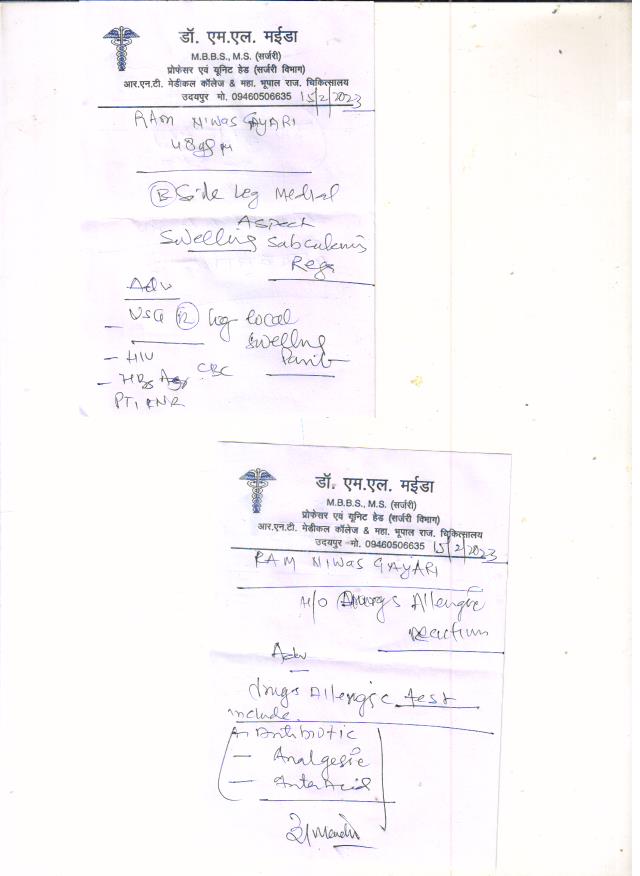 डॉ. एम.एल. मईडा
M.B.B.S., M.S. (सर्जरी)
प्रोफेसर एवं यूनिट हेड (सर्जरी विभाग)
आर.एन.टी. मेडीकल कॉलेज & महा. भूपाल राज. चिकित्सालय
उदयपुर मो. 09460506635 15/2/2023
RAM NIWAS GAYARI
48
Side Leg Medial
Aspect
Swelling
Adv
USG Leg local
Swelling
- HIV
- CBC
PT,
डॉ. एम.एल. मईडा
M.B.B.S., M.S. (सर्जरी)
प्रोफेसर एवं यूनिट हेड (सर्जरी विभाग)
आर.एन.टी. मेडीकल कॉलेज & महा. भूपाल राज. चिकित्सालय
उदयपुर मो. 09460506635 15/2/2023
RAM NIWAS GAYARI
H/O Drugs Allergic
reaction
Adv
drugs Allergic test
include
Antibiotic
— Analgesic
— AntaAcid